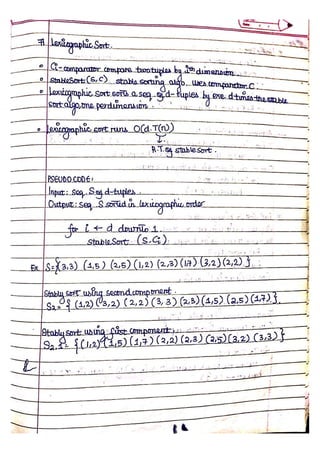 7) Lexicographic Sort.
• Ci - comparator compare two tuples by ith dimension
• StableSort (S, C) stable sorting algo uses comparator C.
• Lexicographic sort sorts a seq. of d-tuples by exe d times the stable
sort algo, one per dimension.
• Lexicographic sort runs O(d.T(n))
R.T. of stable sort.
PSEUDO CODE:
Input: seq. S of d-tuples.
Output: seq. S sorted in lexicographic order
for i ← d downto 1.
stable Sort (S, Ci)
Ex S={(3,3) (1,5) (2,5) (1,2) (2,3) (1,7) (3,2) (2,2) }
Stably sort using second component
S2 = { (1,2) (3,2) (2,2) (3,3) (2,3) (1,5) (2,5) (1,7) }.
Stably sort using first component,
S2,1 = { (1,2) (1,5) (1,7) (2,2) (2,3) (2,5) (3,2) (3,3) }